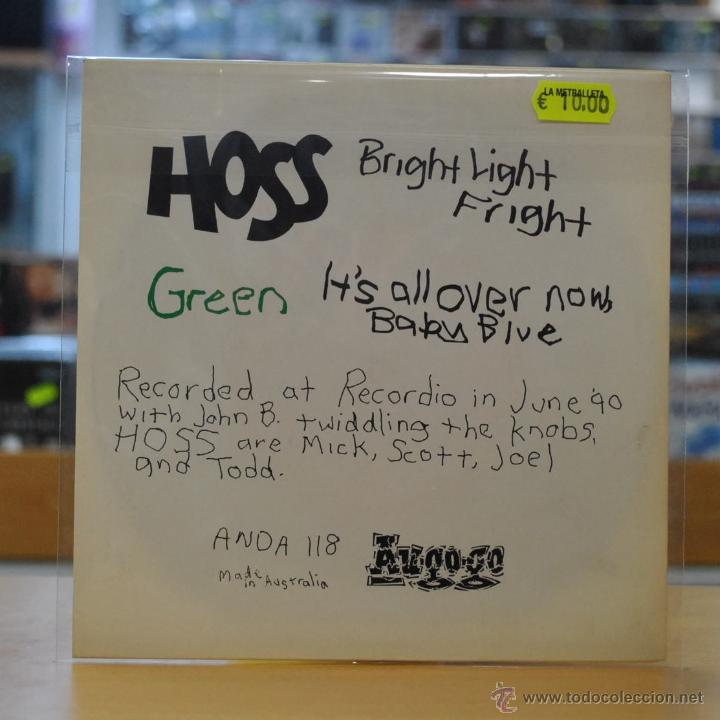 LA METRALLETA
€ 10.00
HOSS Bright Light
Fright
Green It's all over now,
Baby Blue
Recorded at Recordio in June '90
with John B. twiddling the knobs.
HOSS are Mick, Scott, Joel
and Todd.
ANDA 118 Augogo
Made in Australia
www.todocoleccion.net